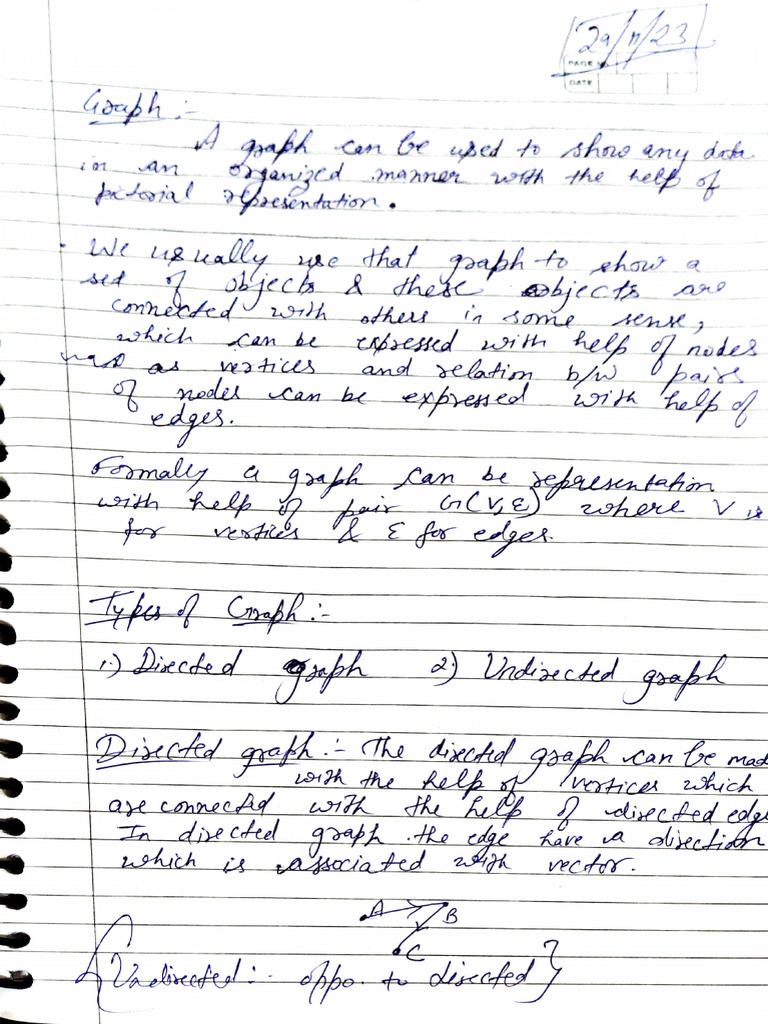 29/11/23
PAGE NO
DATE
Graph :-
A graph can be used to show any data
in an organized manner with the help of
pictorial representation.
We usually use that graph to show a
set of objects & these objects are
connected with others in some sense,
which can be expressed with help of nodes
as vertices and relation b/w pairs
of nodes can be expressed with help of
edges.
Formally a graph can be representation
with help of pair G(V,E) where V is
for vertices & E for edges.
Types of Graph :-
1.) Directed graph 2.) Undirected graph
Directed graph :- The directed graph can be mad
with the help of vertices which
are connected with the help of directed edge
In directed graph the edge have a direction
which is associated with vector.
A B
C
{Undirected :- oppo. to directed}